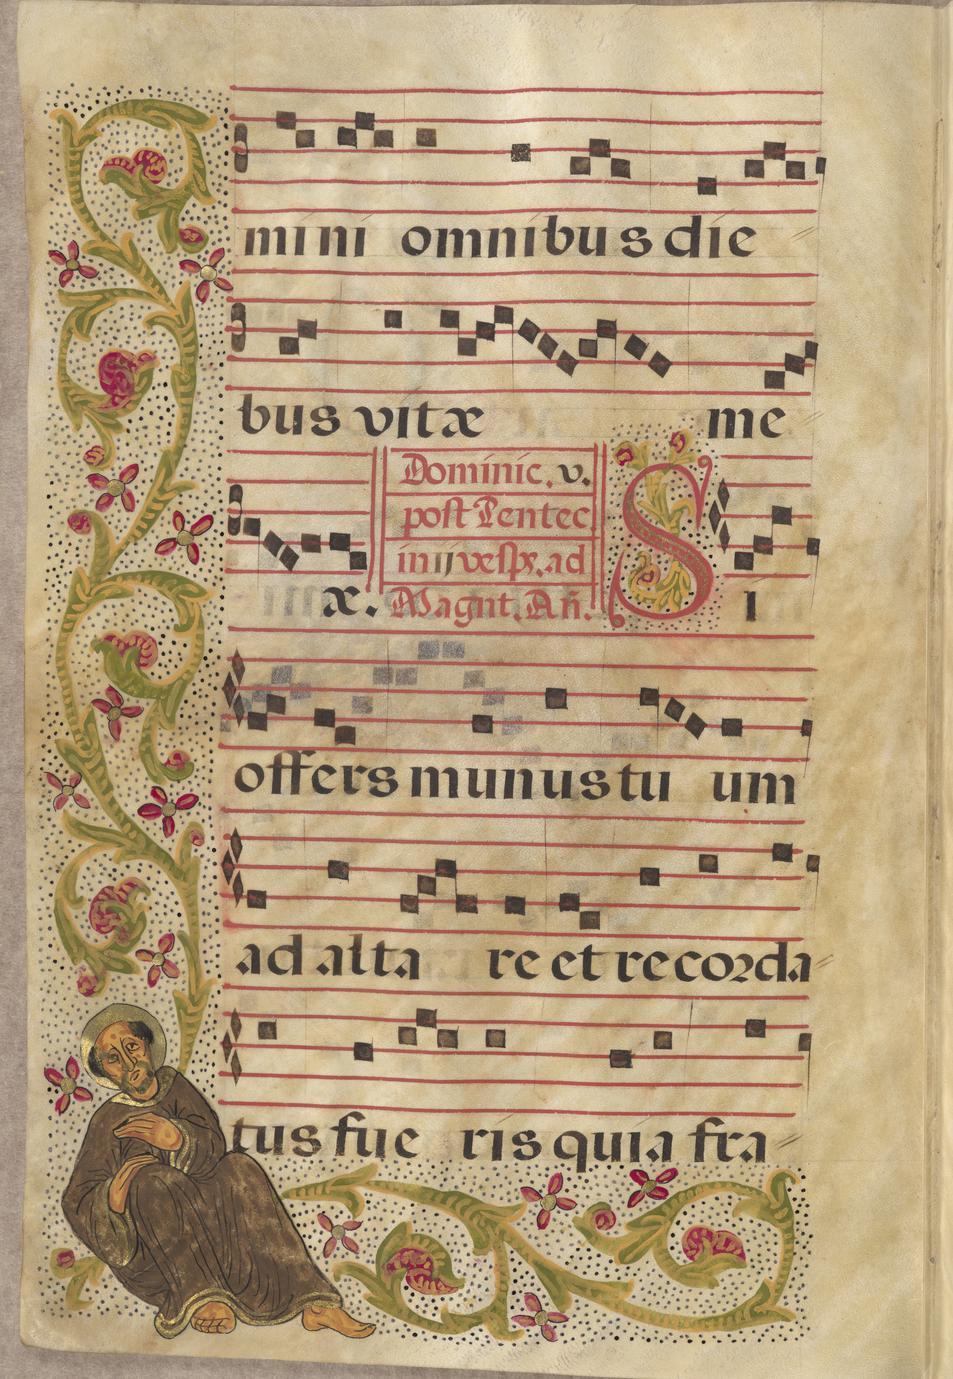 mini omnibus die
bus vitæ me
Dominic. v.
post Pentec
in ij vesp̱. ad
æ. Magnt. Añ. S I
offers munus tu um
ad alta re et recorda
tus fue ris quia fra